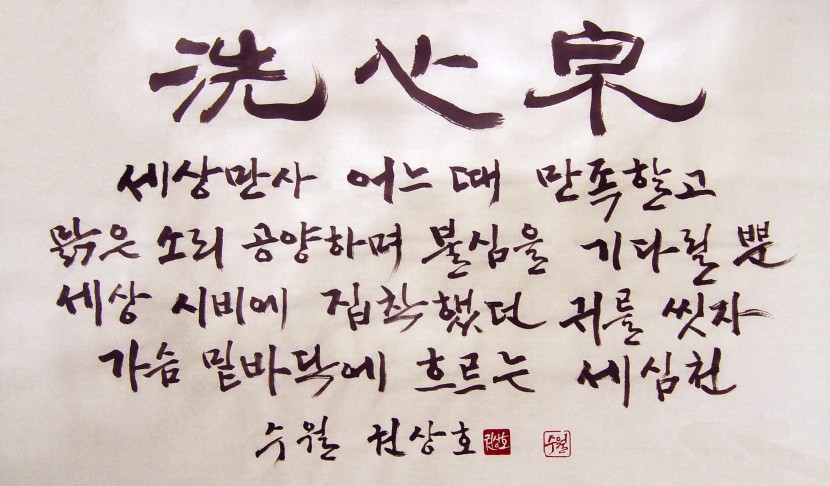 洗心泉
세상만사 어느 때 만족할고
맑은 소리 공양하며 불심을 기다릴 뿐
세상 시비에 집착했던 귀를 씻자
가슴 밑바닥에 흐르는 세심천
수월 권상호 권상호 수월